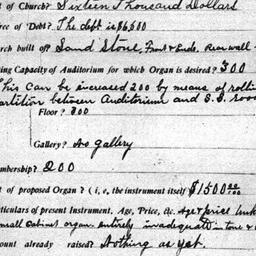 t of Church? Sixteen Thousand Dollars
ree of Debt? The debt is $6,600
urch built of? Sand Stone, Front & Ends, Rear wall
ting Capacity of Auditorium for which Organ is desired? 300
This can be increased 200 by means of rolling
partition between Auditorium and S.S. roo
Floor? 300
Gallery? No gallery
embership? 200
t of proposed Organ? (i, e, the instrument itself $1500 00/100
rticulars of present Instrument, Age, Price, etc. Age & price unk
small Cabinet organ entirely inadequate in tone &
ount already raised? Nothing as yet.